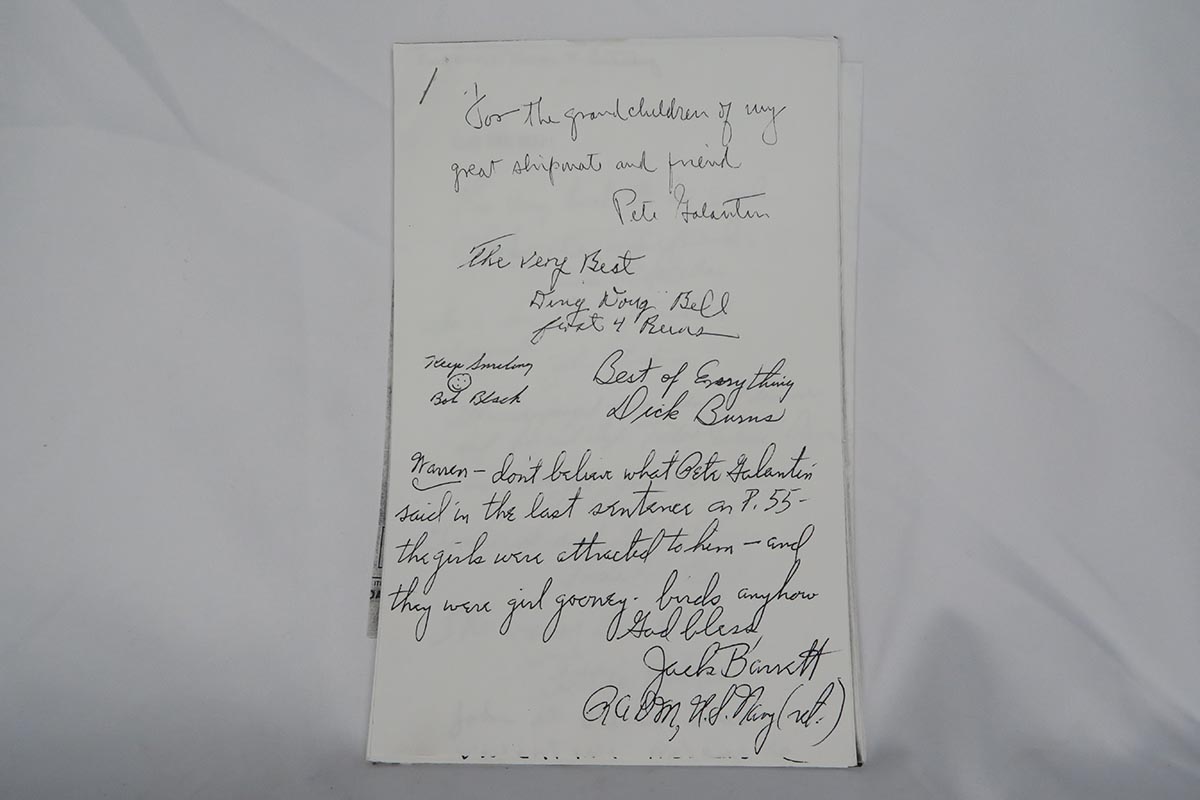 For the grandchildren of my
great shipmate and friend
Pete Galantin
The very Best
Ding Dong Bell
first 4 Runs
Keep Smiling
Bob Black
Best of Everything
Dick Burns
Warren – don't believe what Pete Galantin
said in the last sentence on P. 55 –
the girls were attracted to him – and
they were girl gooney-birds anyhow
God bless,
Jack Barrett
RADM, U.S. Navy (ret.)